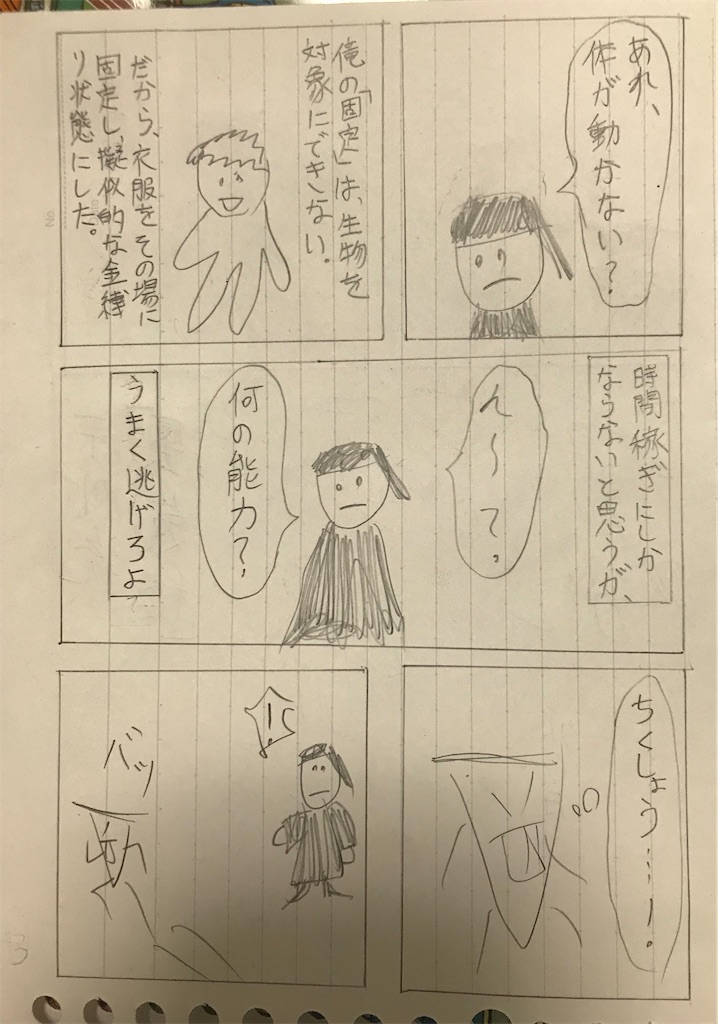 あれ、
体が動かない？
俺の「固定」は、生物を
対象にできない。
だから、衣服をその場に
固定し、擬似的な金縛
り状態にした。
時間稼ぎにしか
ならないと思うが、
ん〜て。
何の能力？
うまく逃げろよ
ちくしょう……！。
!!
バッ